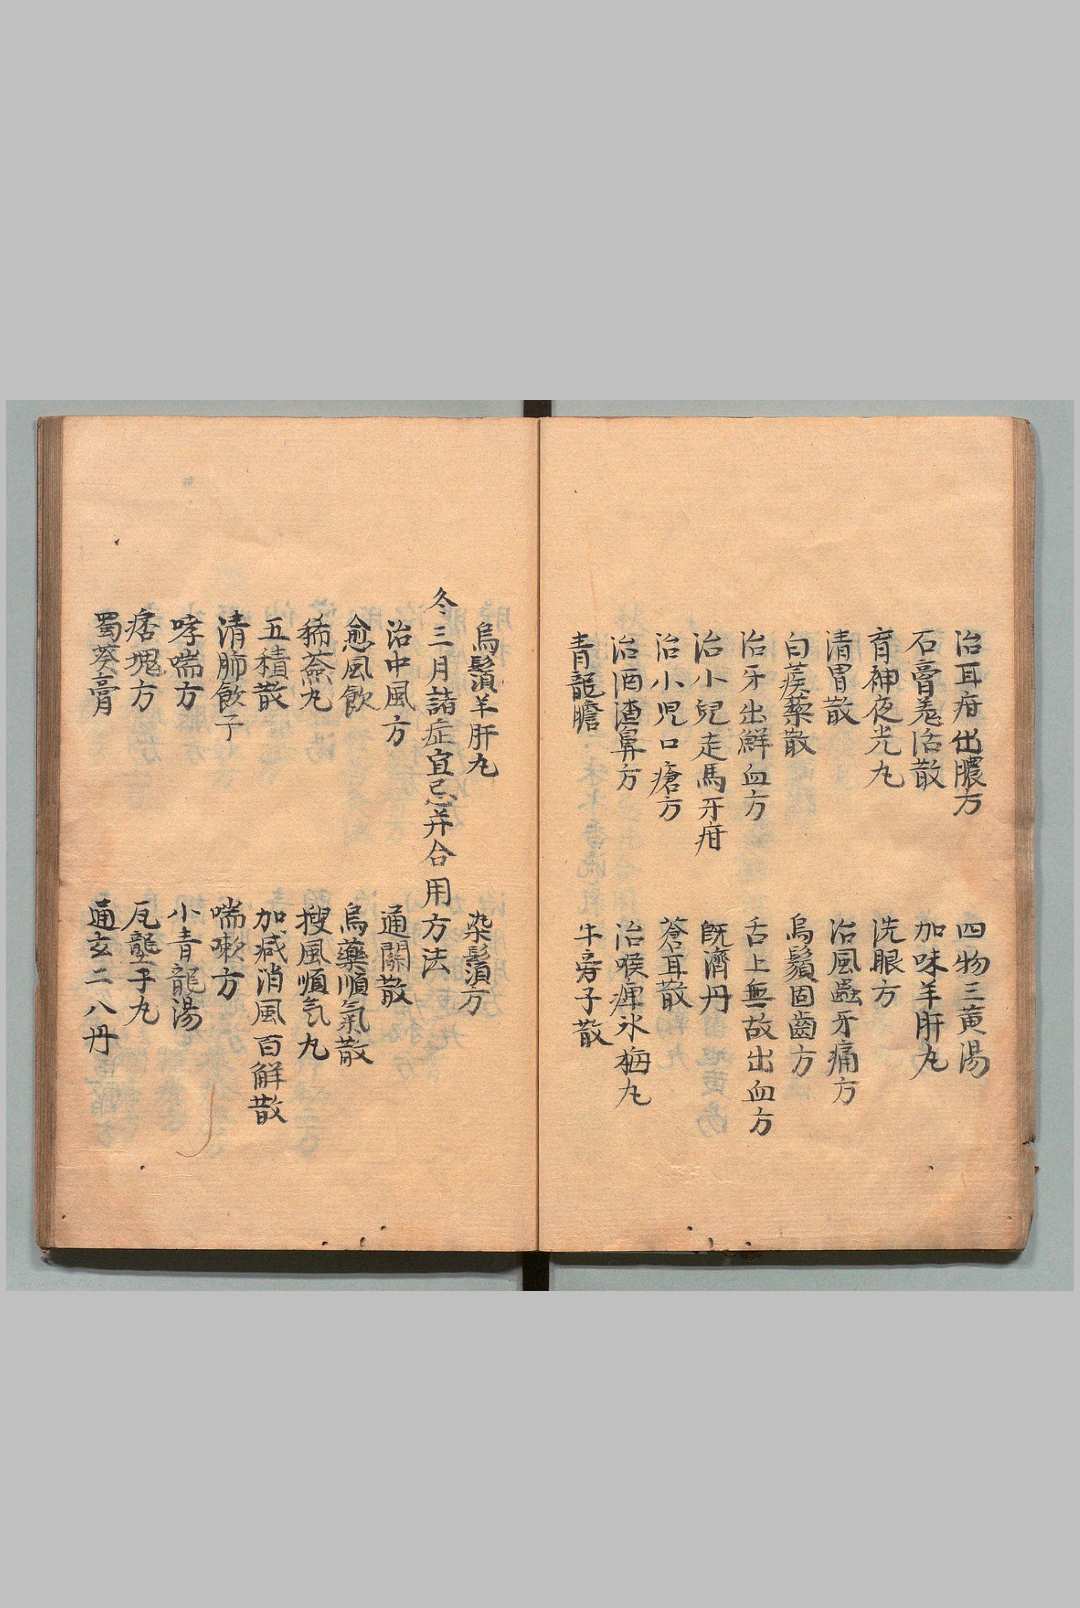 治耳疳出膿方　四物三黄湯
石膏羗活散　加味羊肝丸
育神夜光丸　洗眼方
清胃散　治風蟲牙痛方
白蒺藜散　烏鬚固齒方
治牙出鮮血方　舌上無故出血方
治小兒走馬牙疳　既濟丹
治小児口瘡方　蒼耳散
治酒渣鼻方　治喉痺氷梅丸
青龍膽　牛旁子散
烏鬚羊肝丸　染鬚方
冬三月諸症宜忌并合用方法
治中風方　通關散
愈風飲　烏藥順氣散
豨薟丸　搜風順氣丸
五積散　加减消風百解散
清肺飲子　喘嗽方
哮喘方　小青龍湯
痞塊方　瓦壟子丸
蜀葵膏　通玄二八丹